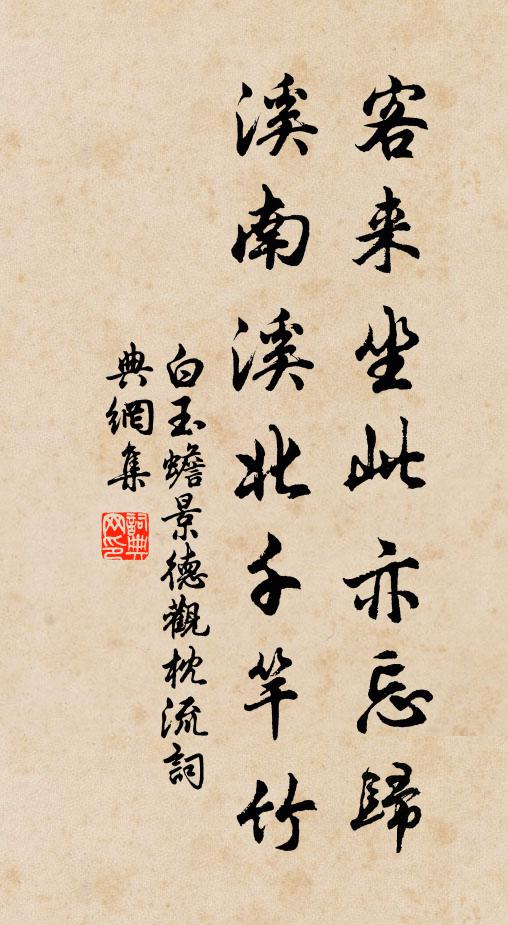 客来坐此亦忘歸
溪南溪北千竿竹
白玉蟾景德觀枕流詞
典網集
詞典網印